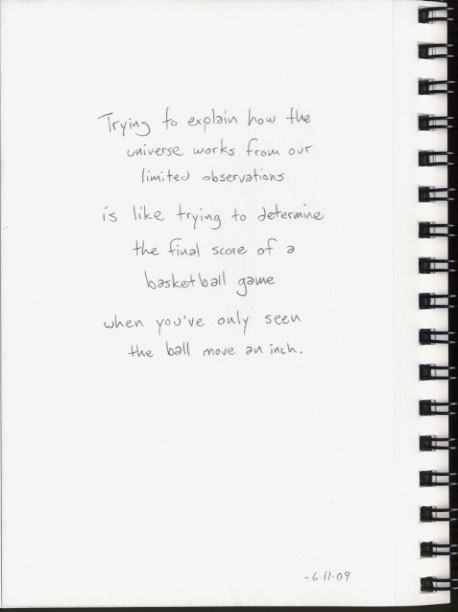 Trying to explain how the
universe works from our
limited observations
is like trying to determine
the final score of a
basketball game
when you've only seen
the ball move an inch.
-6.11.09